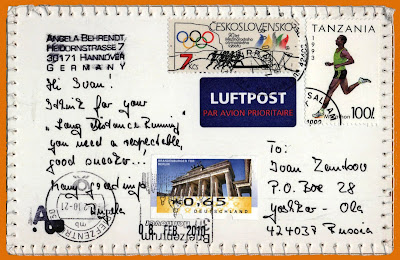 ANGELA BEHRENDT
HEIDORNSTRASSE 7
30171 HANNOVER
GERMANY
Hi Ivan!
I think for your
"Long Distance Running"
you need a respectable
good sneaker...
Many greetings
Angela
ČESKOSLOVENSKO
7
TANZANIA
1993
100/-
LUFTPOST
PAR AVION PRIORITAIRE
BRANDENBURGER TOR
BERLIN
0,65
DEUTSCHLAND
Briefzentrum
08 FEB 2010
To:
Ivan
P.O. Box 28
Yoshkar-Ola
424037 Russia